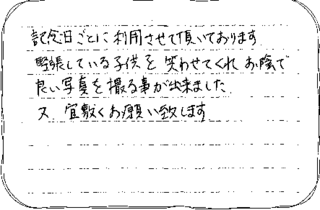 記念日ごとに利用させて頂いております
緊張している子供を笑わせてくれお陰で
良い写真を撮る事が出来ました
又、宜敷くお願い致します